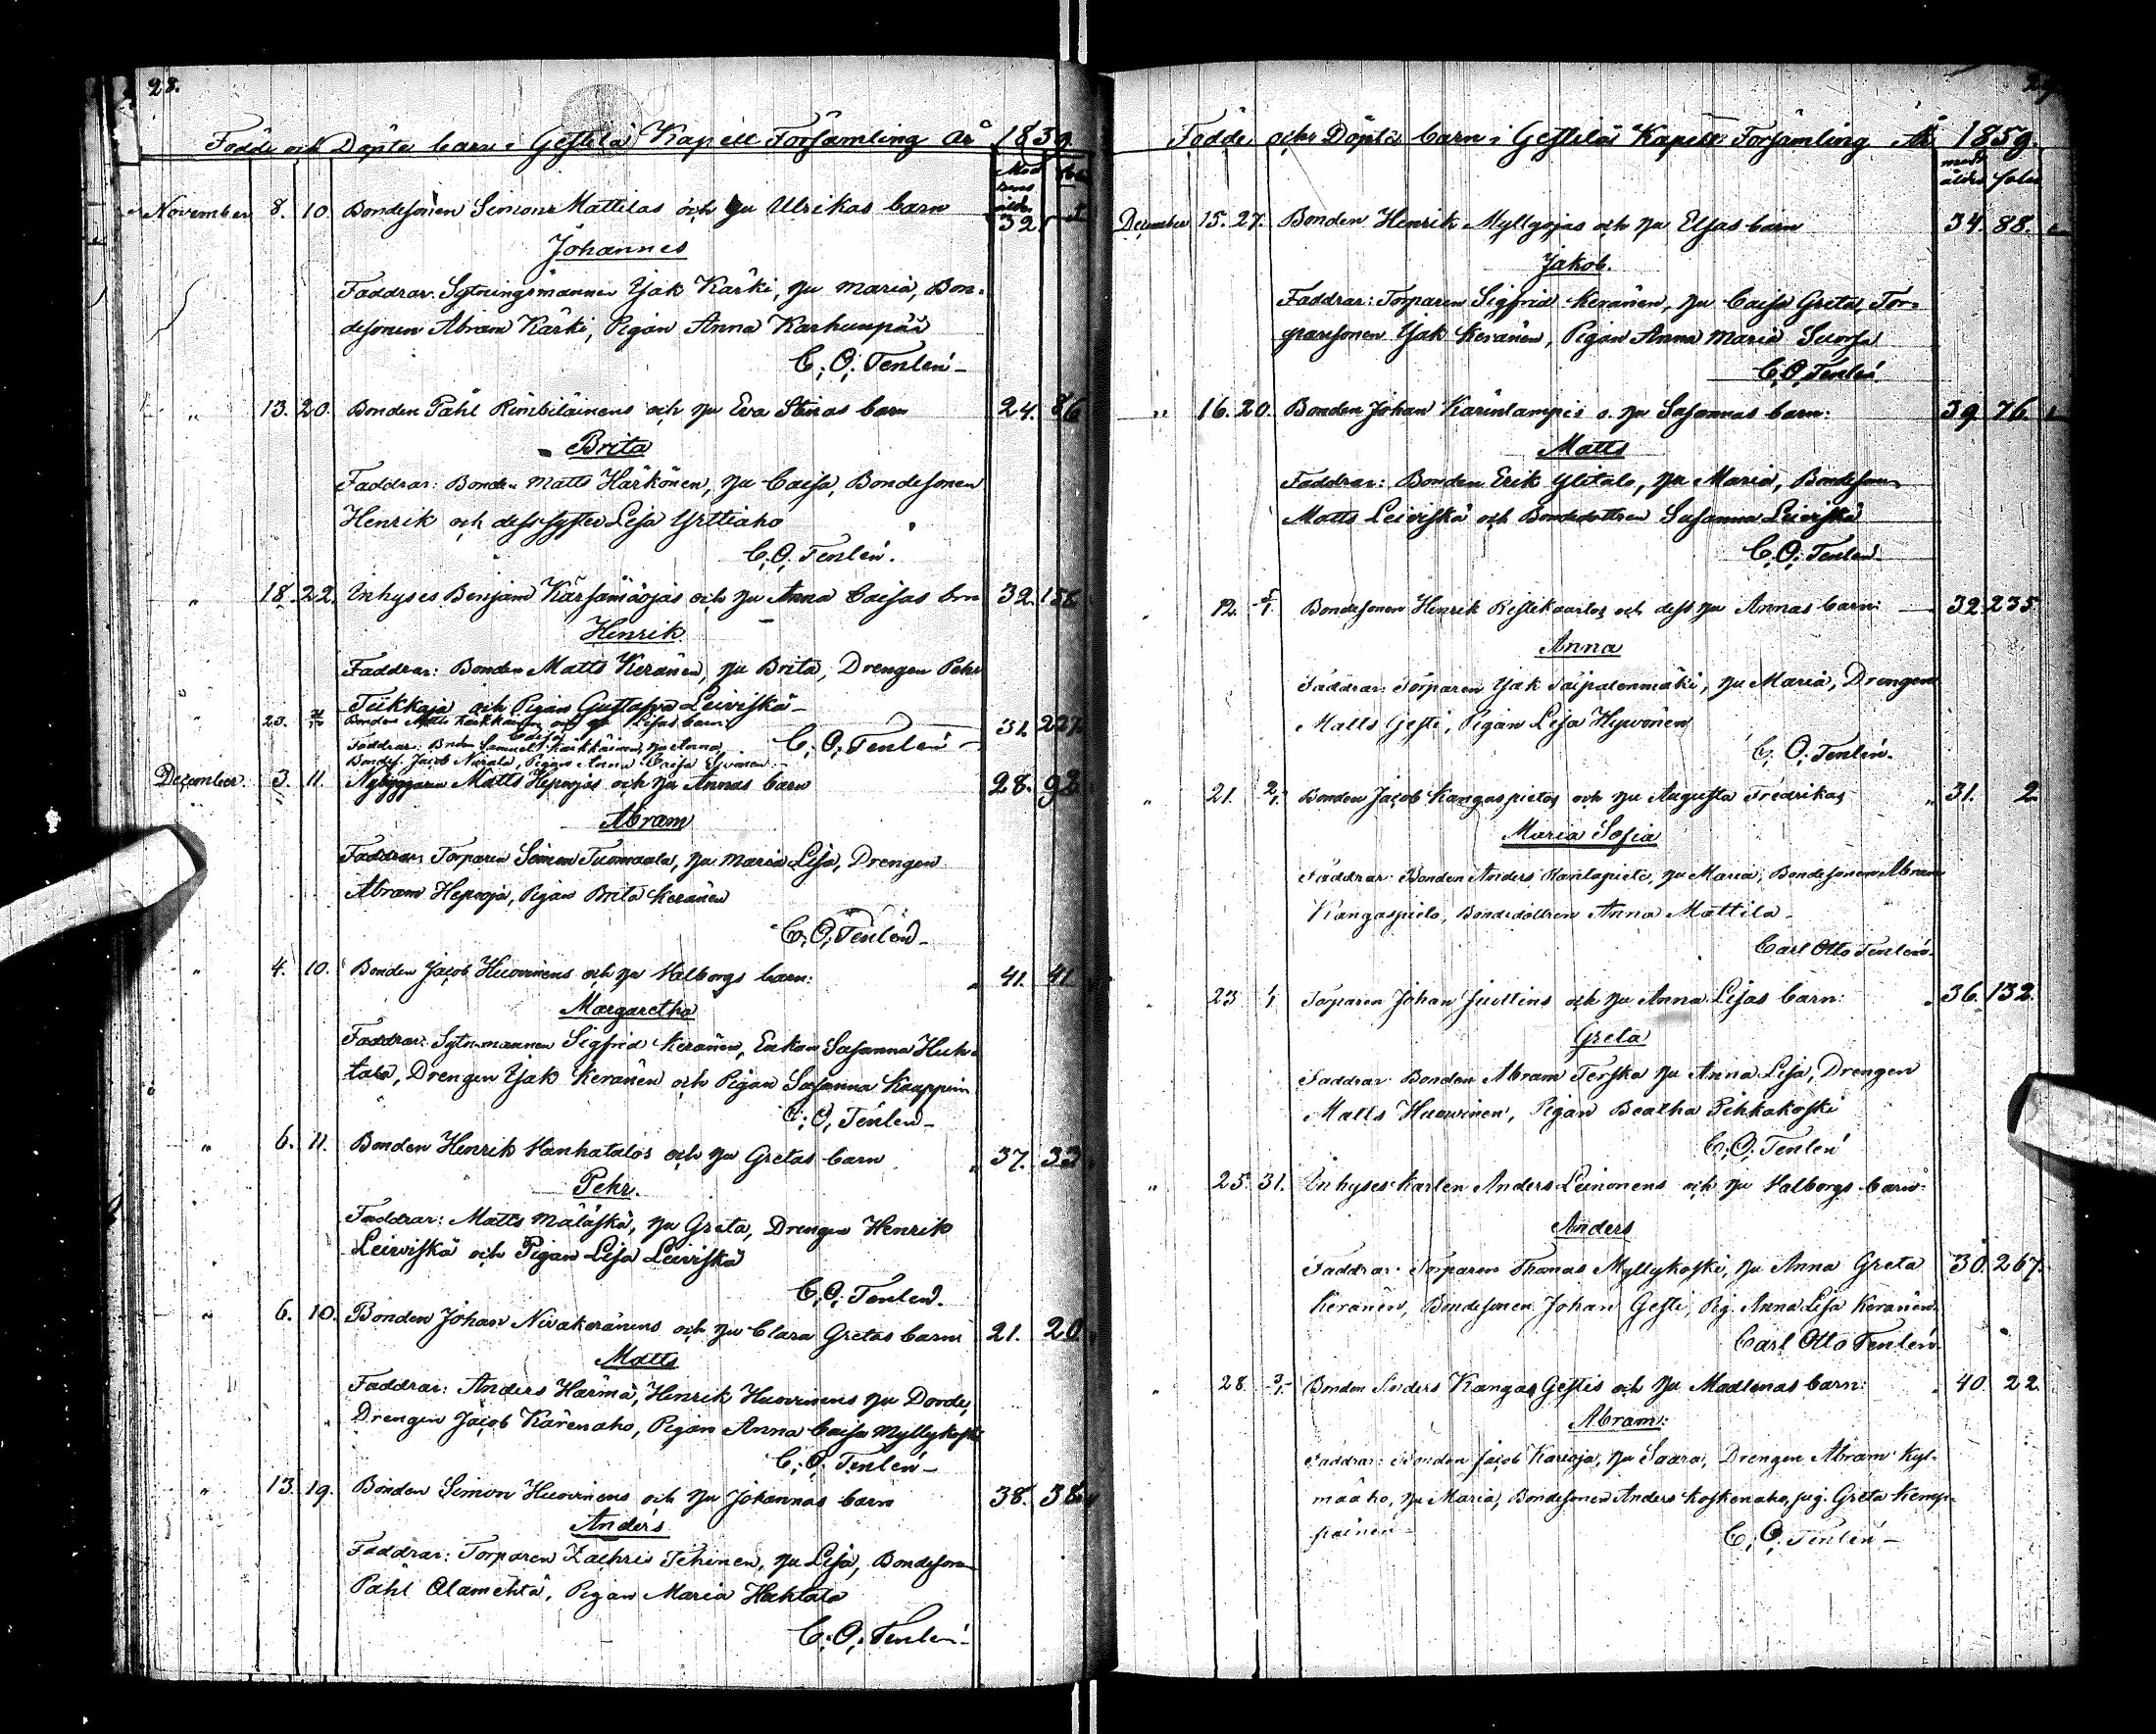 28.
Födde och Döpte barn i Gestilä Kapell Församling År 1859.
Modrens ålder
November 8. 10. Bondesonen Simon Mattilas och hu Ulrikas barn 32.
Johannes
Faddrar: Sytningsmannen Isak Kärki, hu Maria, Bon-
desonen Abram Kärki, Pigan Anna Karhunpää
C. O. Tenlén
" 13. 20. Bonden Påhl Rimbiläinens och hu Eva Stinas barn 24. 86
Brita
Faddrar: Bonden Matts Härkönen, hu Caisa, Bondesonen
Henrik och dess syster Lisa Yrttiaho
C. O. Tenlén.
" 18. 22. Inhyses Benjam Kärsämäojas och hu Anna Caisas brn 32. 158
Henrik
Faddrar: Bonden Matts Keränen, hu Brita, Drengen Pehr
Tiikkaja och Pigan Gustafva Leiviskä
" 20. Bonden Matts Kärkkäinen och hu Lisas barn 31 227.
Caisa
Faddrar: Bnden Samuel Kärkkäinen, hu Anna,
C. O. Tenlén
Bondes. Jacob Närälä, Pigan Anna Caisa
December. 3. 11. Nybyggaren Matts Hepoojas och hu Annas barn 28. 92
Abram
Faddrar: Torparen Simon Tuomaala, hu Maria Lisa, Drengen
Abram Hepooja, Pigan Brita Keränen
C. O. Tenlén
" 4. 10. Bonden Jacob Huovinens och hu Valborgs barn: 41. 41
Margaretha
Faddrar: Sytn-mannen Sigfrid Keränen, Enkan Susanna Huh-
tala, Drengen Isak Keränen och Pigan Susanna Kauppin
C. O. Tenlén
" 6. 11. Bonden Henrik Vanhatalos och hu Gretas barn 37. 33
Pehr.
Faddrar: Matts Mäläskä, hu Greta, Drengen Henrik
Leiviskä och Pigan Lisa Leiviskä
C. O. Tenlén.
" 6. 10. Bonden Johan Nivakeränens och hu Clara Gretas barn 21. 20
Matts
Faddrar: Anders Härmä, Henrik Huovinens hu Dorde,
Drengen Jacob Kärenaho, Pigan Anna Caisa Myllykoski
C. O. Tenlén
" 13. 19. Bonden Simon Huovinens och hu Johannas barn 38. 38
Anders
Faddrar: Torparen Zachris Tehinen, hu Lisa, Bondesonen
Påhl Alamehtä, Pigan Maria Hahtala
C. O. Tenlén
Födde och Döpte barn i Gestilä Kapell Församling År 1859.
modr ålder folio
December 15. 27. Bonden Henrik Myllyojas och hu Elsas barn 34. 88.
Jakob.
Faddrar: Torparen Sigfrid Keränen, hu Caisa Greta, Tor-
paresonen Isak Keränen, Pigan Anna Maria Suorsa
C. O. Tenlén
" 16. 20. Bonden Johan Kärinlampis o. hu Susannas barn: 39. 76.
Matts
Faddrar: Bonden Erik Ylitalo, hu Maria, Bondesonen
Matts Leiviskä och Bondedottren Susanna Leiviskä
C. O. Tenlén
12. 5/1. Bondesonen Henrik Ristikaartos och dess hu Annas barn: 32. 235
Anna
Faddrar: Torparen Isak Taipalenmäki, hu Maria, Drengen
Matts Gesti, Pigan Lisa Hyvönen
C. O. Tenlén.
" 21. 2/1. Bonden Jacob Kangaspietos och hu Augusta Fredrikas " 31. 2
Maria Sofia
Faddrar: Bonden Anders Rantapiete, hu Maria, Bondesonen Abram
Kangaspieto, Bondedottren Anna Mattila
Carl Otto Tenlén.
23 1/1 Torparen Johan Juottins och hu Anna Lisas barn: 36. 132.
Greta
Faddrar: Bonden Abram Terska hu Anna Lisa, Drengen
Matts Huovinen, Pigan Beatha Pihkakoski
C. O. Tenlén
" 25. 31. Inhyses Karlen Anders Leinonens och hu Valborgs barn:
Anders
Faddrar: Torparen Thomas Myllykoski, hu Anna Greta 30. 267.
Keränen, Bondesonen Johan Gesti, Pig. Anna Lisa Keränen
Carl Otto Tenlén
" 28. 3/1. Bonden Anders Kangas Gestis och hu Madlenas barn: 40 22.
Abram:
Faddrar: Bonden Jacob Karioja, hu Saara, Drengen Abram Kyl-
määho, hu Maria, Bondesonen Anders Koskenaho, pig. Greta Kemp-
painen
C. O. Tenlén